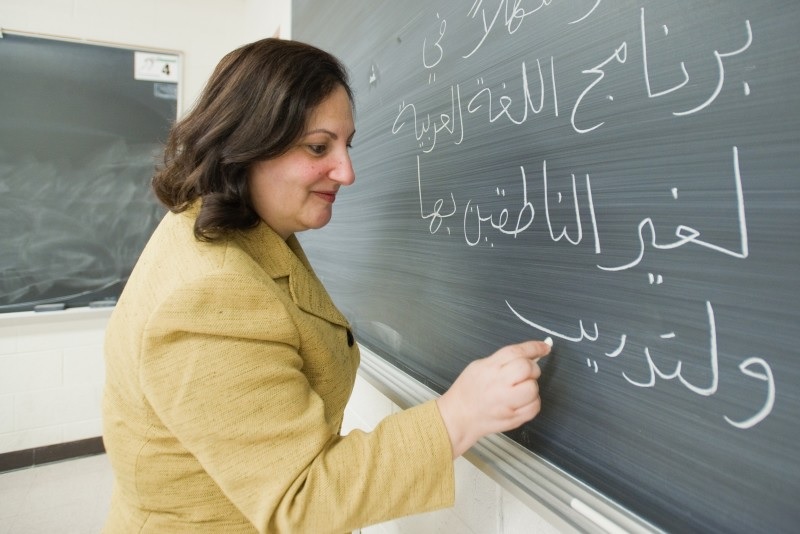 في
برنامج اللغة العربية
لغير الناطقين بها
ولتدريب
4